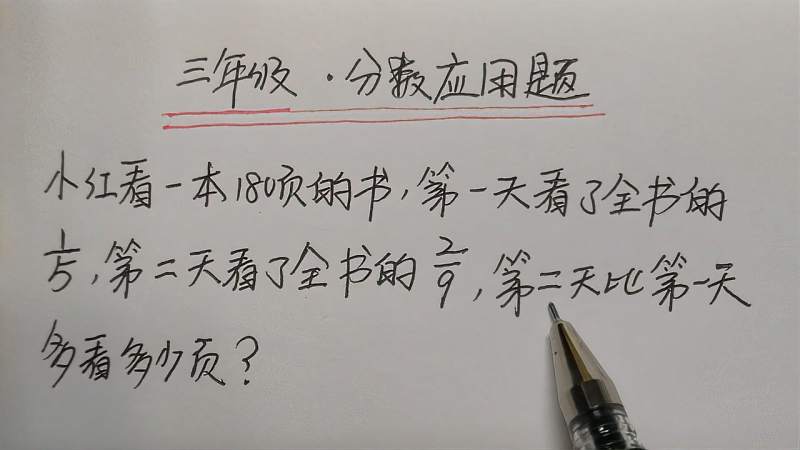 三年级·分数应用题
小红看一本180页的书,第一天看了全书的
1/5,第二天看了全书的2/9,第二天比第一天
多看多少页?